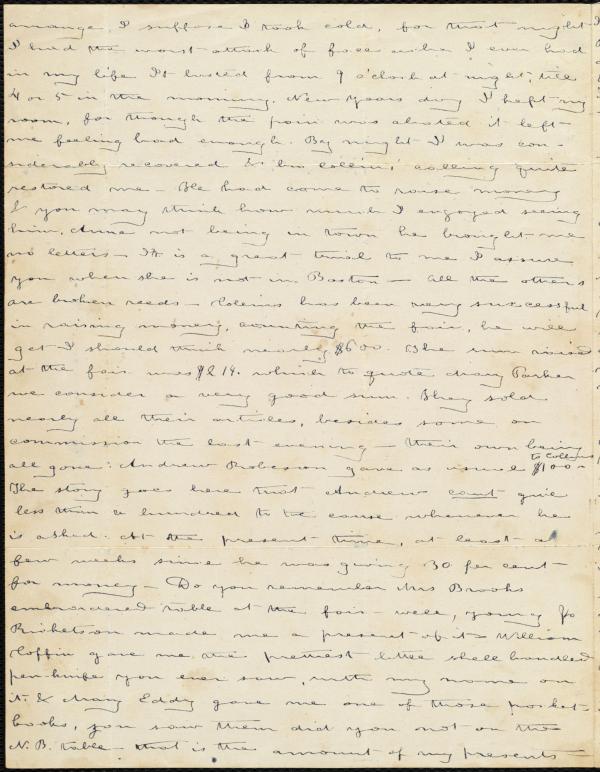 arrange, I suppose I took cold, for that night
I had the worst attack of face ache I ever had
in my life It lasted from 9 o'clock at night, till
4 or 5 in the morning. New Years day I kept my
room, for though the pain was abated it left
me feeling bad enough. By night I was con-
siderably recovered & John Collins' calling quite
restored me – He had come to raise money
& you may think how much I enjoyed seeing
him. Anne not being in town he brought me
no letters – It is a great trial to me I assure
you when she is not in Boston – all the others
are broken reeds – Collins has been very successful
in raising money, counting the fair, he will
get I should think nearly $600. The sum raised
at the fair was $214. which to quote Mary Parker
we consider a very good sum. They sold
nearly all their articles, besides some on
commission the last evening – their own being
all gone: Andrew Robeson gave as usual to Collins $100–
The story goes here that Andrew cant give
less than a hundred to the cause whenever he
is asked. At the present time, at least a
few weeks since he was giving 30 per cent
for money – Do you remember Mrs Brooks
embroidered table at the fair – well, young Jo
Ricketson made me a present of it – William
Coffin gave me the prettiest little shell handled
pen-knife you ever saw, with my name on
it. & Mary Eddy gave me one of those pocket-
books, you saw them did you not on the
N.B. table – that is the amount of my presents –